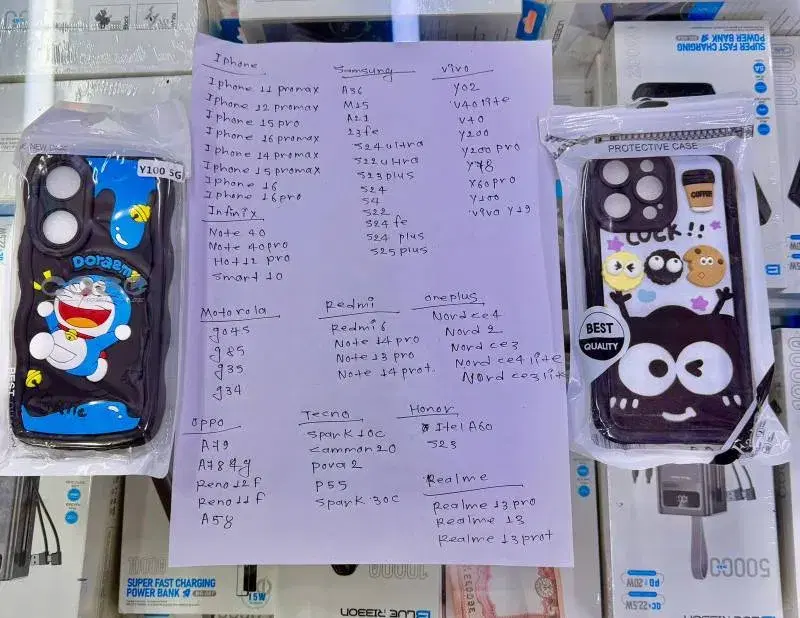 Iphone
Iphone 11 promax
Iphone 12 promax
Iphone 15 pro
Iphone 16 promax
Iphone 14 promax
Iphone 15 promax
Iphone 16
Iphone 16 pro
Infinix
Note 40
Note 40 pro
Hot 12 pro
Smart 10
Samsung
A36
M15
A21
23 fe
S24 ultra
S22 ultra
S23 plus
S24
S4
S22
S24 fe
S24 plus
S25 plus
Vivo
Y02
V40 lite
V40
Y200
Y200 pro
Y78
Y60 pro
Y100
Vivo Y19
Motorola
g04s
g85
g35
g34
Redmi
Redmi 6
Note 14 pro
Note 13 pro
Note 14 prot
oneplus
Nord ce4
Nord 2
Nord ce3
Nord ce4 lite
Nord ce3 lite
oppo
A79
A78 4g
Reno 12 F
Reno 11 F
A58
Tecno
Spark 10c
Cammon 20
Pova 2
P55
Spark 30c
Honor
Itel A60
S23
Realme
Realme 13 pro
Realme 13
Realme 13 prot
Y100 5G
Doraem
PROTECTIVE CASE
COFFEE
BEST
QUALITY
BEST
SUPER FAST CHARGING
POWER BANK
SUPER FAST CHARGING
POWER BANK
15W
BLUE RIBBON
10000
50000
PD: 20W
QC: 22.5W